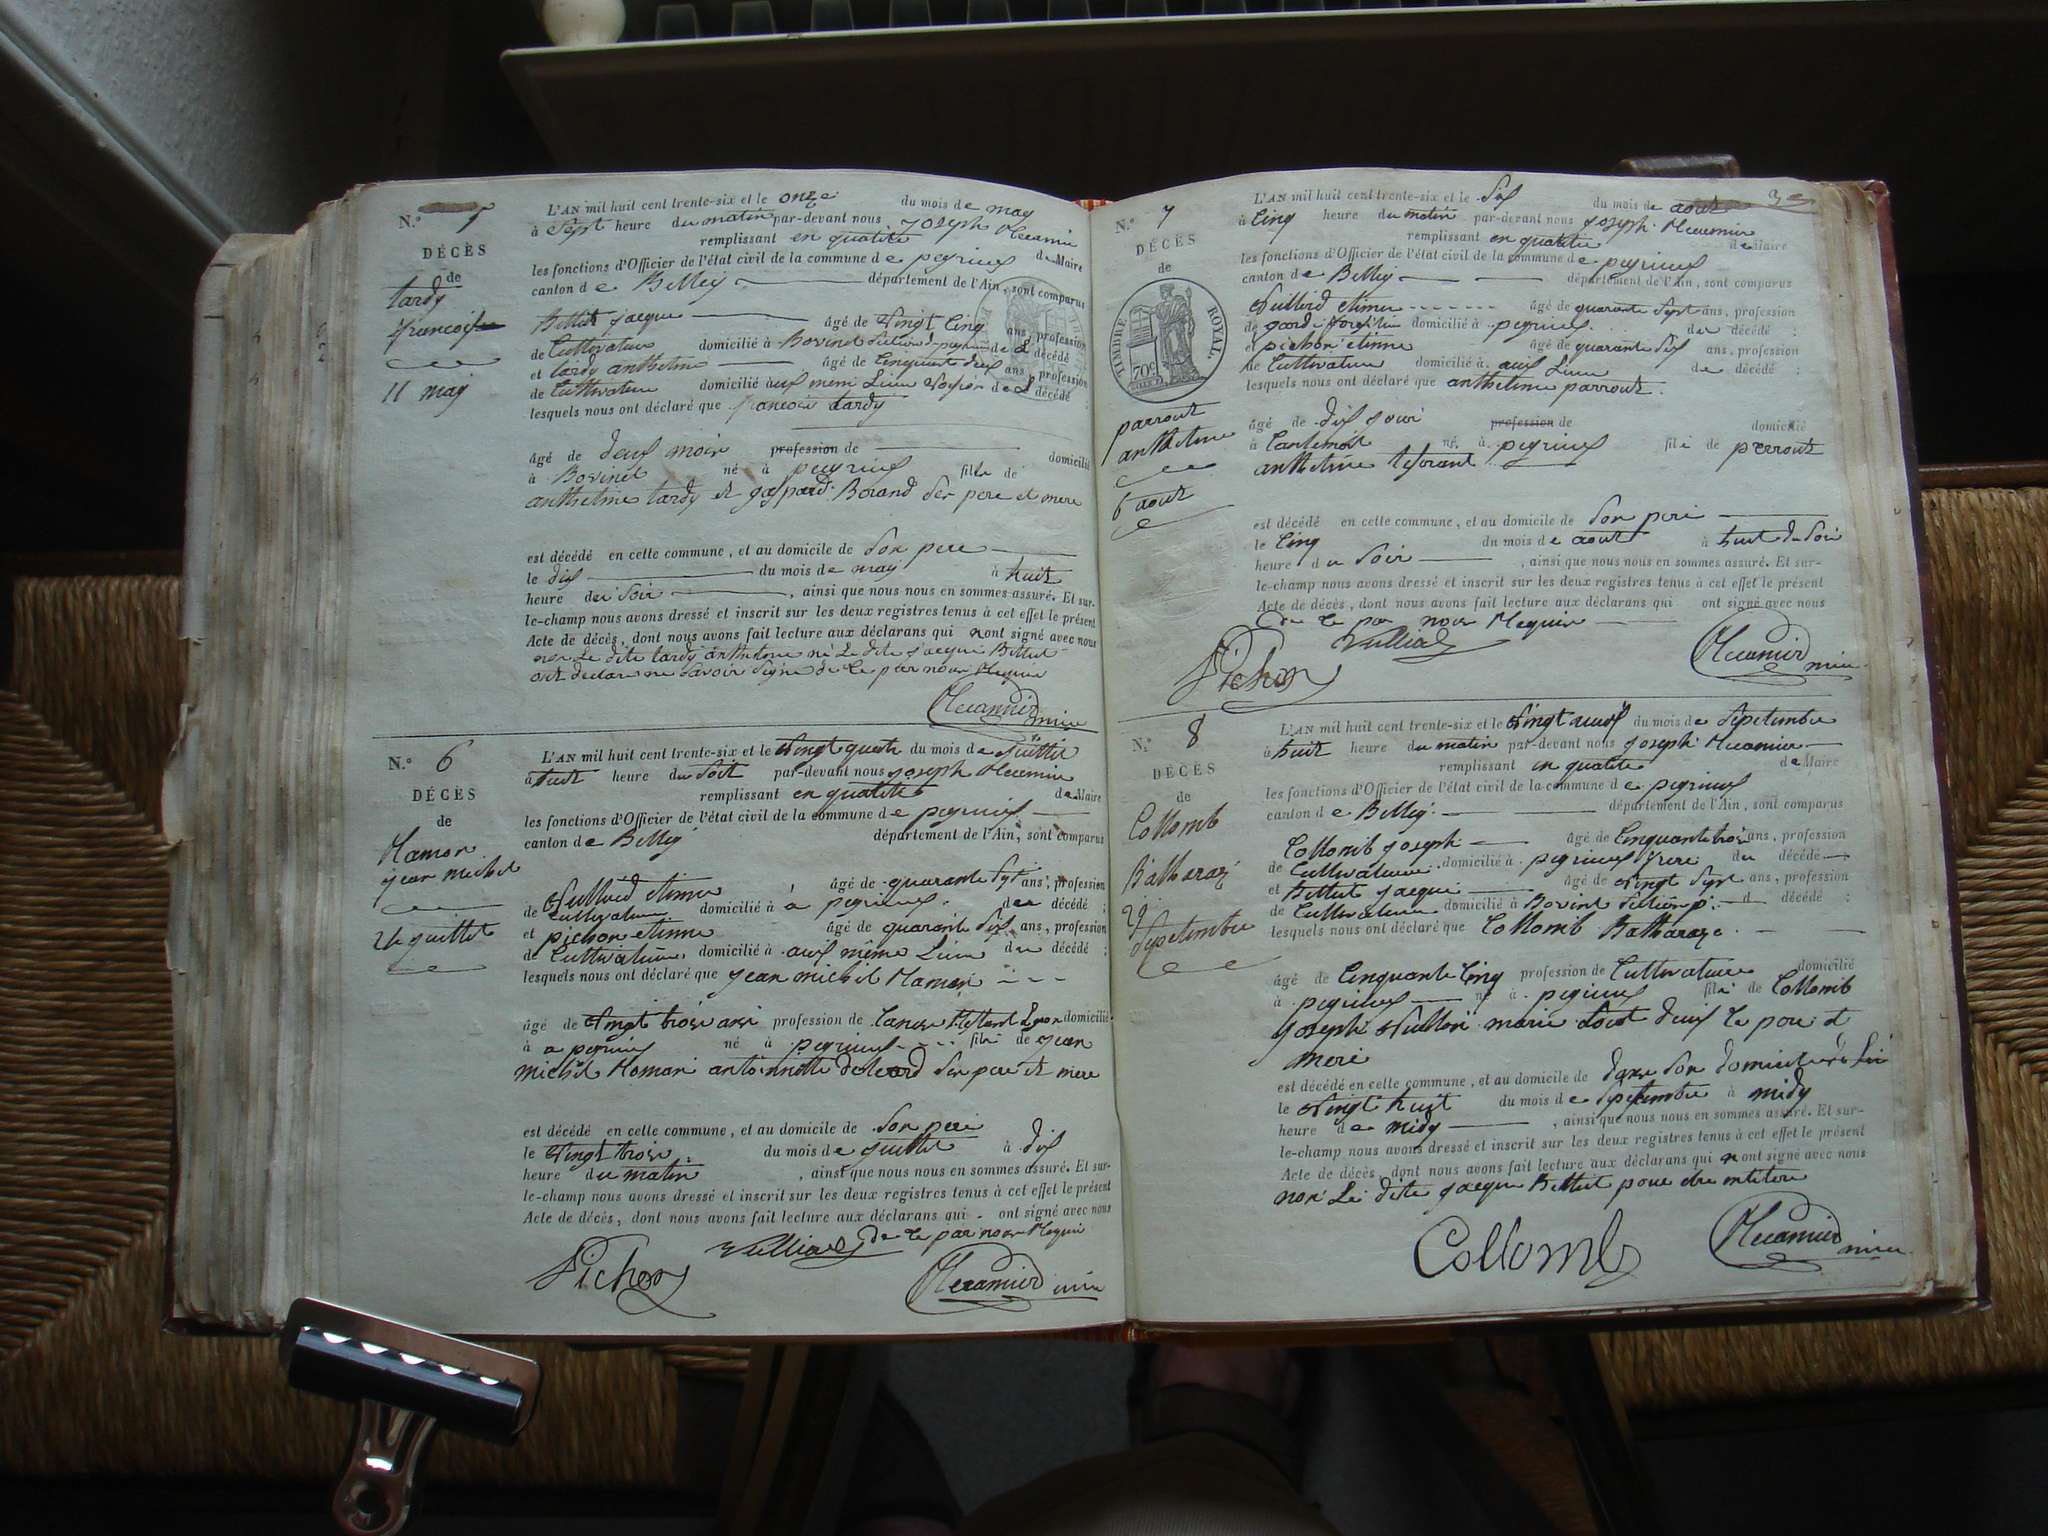 N.° 5
DÉCÈS
de
tardy
francois
11 may
L'AN mil huit cent trente-six et le onze du mois de may
à Sept heure du matin par-devant nous joseph
remplissant en qualité de Maire
les fonctions d'Officier de l'état civil de la commune de peyrieux
canton de Belley département de l'Ain, sont comparus
Bettet jacque âgé de vingt cinq ans, profession
de Cultivateur domicilié à Bovinel décédé
et tardy anthelme âgé de Cinquante deux ans, profession
de Cultivateur domicilié aux meme Lieu décédé
lesquels nous ont déclaré que francois tardy
âgé de deux mois profession de domicilié
à Bovinel né à peyrieux fils de
anthelme tardy et gaspard Borand Ses pere et mere
est décédé en cette commune, et au domicile de Son pere
le dix du mois de may à huit
heure du Soir, ainsi que nous nous en sommes assuré. Et sur-
le-champ nous avons dressé et inscrit sur les deux registres tenus à cet effet le présent
Acte de décès, dont nous avons fait lecture aux déclarans qui nont signé avec nous
non Le dite tardy anthelme né Le dite jacque Bettet
ont declare ne Savoir Signé de ce par nous
N.° 6
DÉCÈS
de
Mamon
jean michel
24 juillet
L'AN mil huit cent trente-six et le vingt quatre du mois de juillet
à huit heure du Soit par-devant nous joseph
remplissant en qualité de Maire
les fonctions d'Officier de l'état civil de la commune de peyrieux
canton de Belley département de l'Ain, sont comparus
Vulliod etienne âgé de quarante Sept ans, profession
de Cultivateur domicilié à à peyrieux décédé ;
et pichon etienne âgé de quarante Six ans, profession
de Cultivateur domicilié à aux même Lieu du décédé ;
lesquels nous ont déclaré que jean michel Mamon
âgé de vingt trois ans profession de domicilié
à a peyrieux né à peyrieux fils de jean
michel Momon antoinette Ses pere et mere
est décédé en cette commune, et au domicile de Son pere
le vingt trois du mois de juillet à dix
heure du matin, ainsi que nous nous en sommes assuré. Et sur-
le-champ nous avons dressé et inscrit sur les deux registres tenus à cet effet le présent
Acte de décès, dont nous avons fait lecture aux déclarans qui ont signé avec nous
de ce par nous
Pichon Vulliod
N.° 7
DÉCÈS
de
TIMBRE ROYAL.
70c
parrout
anthelme
6 aout
L'AN mil huit cent trente-six et le Six du mois de aout
à Cinq heure du matin par-devant nous joseph
remplissant en qualité de Maire
les fonctions d'Officier de l'état civil de la commune de peyrieux
canton de Belley département de l'Ain, sont comparus
Vulliod etienne âgé de quarante Sept ans, profession
de gard domicilié à peyrieux décédé ;
et pichon etienne âgé de quarante Six ans, profession
de Cultivateur domicilié à aux Lieu décédé ;
lesquels nous ont déclaré que anthelme parrout
âgé de dix jour profession de domicilié
à né à peyrieux fils de perrout
anthelme
est décédé en cette commune, et au domicile de Son pere
le Cinq du mois de aout à huit du Soir
heure du Soir, ainsi que nous nous en sommes assuré. Et sur-
le-champ nous avons dressé et inscrit sur les deux registres tenus à cet effet le présent
Acte de décès, dont nous avons fait lecture aux déclarans qui ont signé avec nous
de ce par nous
Pichon Vulliod
N.° 8
DÉCÈS
de
Collomb
Baltharaz
29
Septembre
L'AN mil huit cent trente-six et le vingt neuf du mois de Septembre
à huit heure du matin par-devant nous joseph
remplissant en qualité de Maire
les fonctions d'Officier de l'état civil de la commune de peyrieux
canton de Belley département de l'Ain, sont comparus
Collomb joseph âgé de Cinquante trois ans, profession
de Cultivateur domicilié à peyrieux frere du décédé ;
et Bettet jacque âgé de vingt Sept ans, profession
de Cultivateur domicilié à Bovinel décédé ;
lesquels nous ont déclaré que Collomb Baltharaze
âgé de Cinquante Cinq profession de Cultivateur domicilié
à peyrieux né à peyrieux fils de Collomb
joseph marie deux Le pere et
mere
est décédé en cette commune, et au domicile de dans Son domicile
le vingt huit du mois de Septembre à midy
heure de midy, ainsi que nous nous en sommes assuré. Et sur-
le-champ nous avons dressé et inscrit sur les deux registres tenus à cet effet le présent
Acte de décès, dont nous avons fait lecture aux déclarans qui nont signé avec nous
non Le dite jacque Bettet pour
Collomb